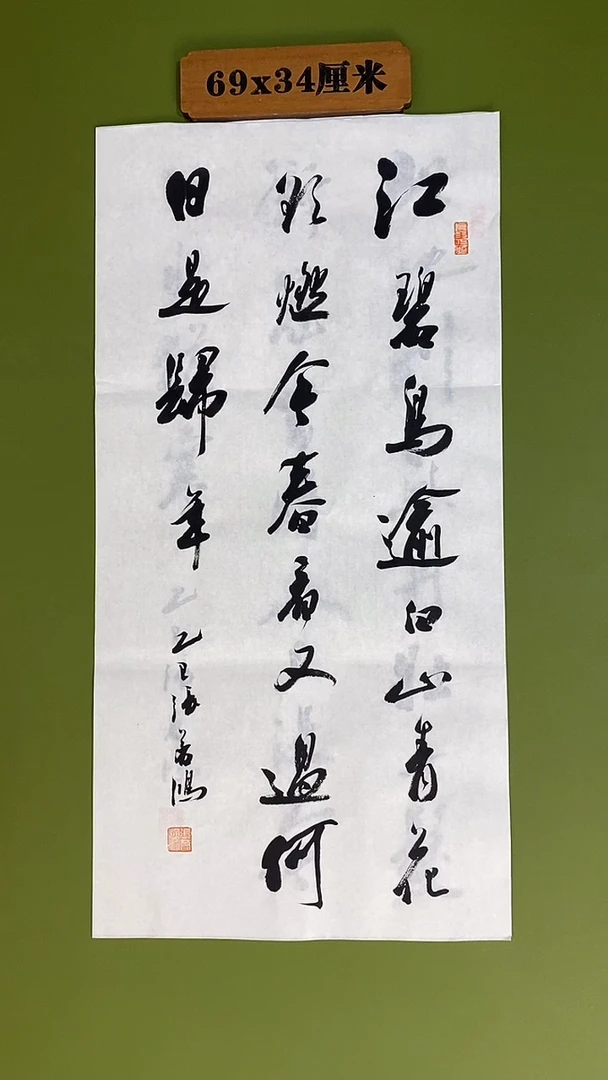 69x34厘米
江碧鳥逾白山青花
欲燃今春看又過何
日是歸年
乙巳張鴻